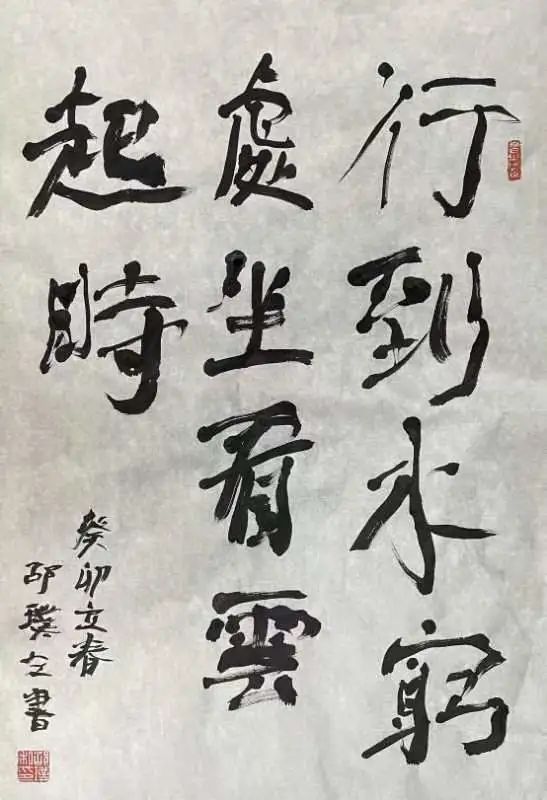 行到水窮
處坐看雲
起時
癸卯立春
邵璞之書